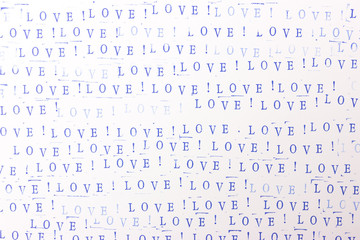 LOVE! LOVE! LOVE! LOVE! LOVE! LOVE!
LOVE! LOVE! LOVE! LOVE! LOVE! LOVE!
LOVE! LOVE! LOVE! LOVE! LOVE! LOVE!
LOVE! LOVE! LOVE! LOVE! LOVE! LOVE!
LOVE! LOVE! LOVE! LOVE! LOVE! LOVE!
LOVE! LOVE! LOVE! LOVE! LOVE!
LOVE! LOVE! LOVE! LOVE! LOVE! LOVE!
LOVE! LOVE! LOVE! LOVE! LOVE! LOVE!
LOVE! LOVE! LOVE! LOVE! LOVE! LOVE!
LOVE! LOVE! LOVE! LOVE! LOVE! LOVE!
LOVE! LOVE! LOVE! LOVE! LOVE! LOVE!
LOVE! LOVE! LOVE! LOVE! LOVE! LOVE!